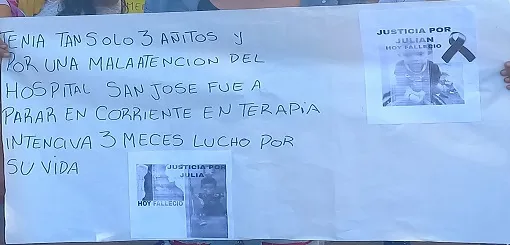 TENIA TAN SOLO 3 AÑITOS Y
POR UNA MALA ATENCION DEL
HOSPITAL SAN JOSE FUE A
PARAR EN CORRIENTE EN TERAPIA
INTENCIVA 3 MECES LUCHO POR
SU VIDA
JUSTICIA POR
JULIAN
HOY FALLECIO
JUSTICIA POR
JULIA
HOY FALLECIO